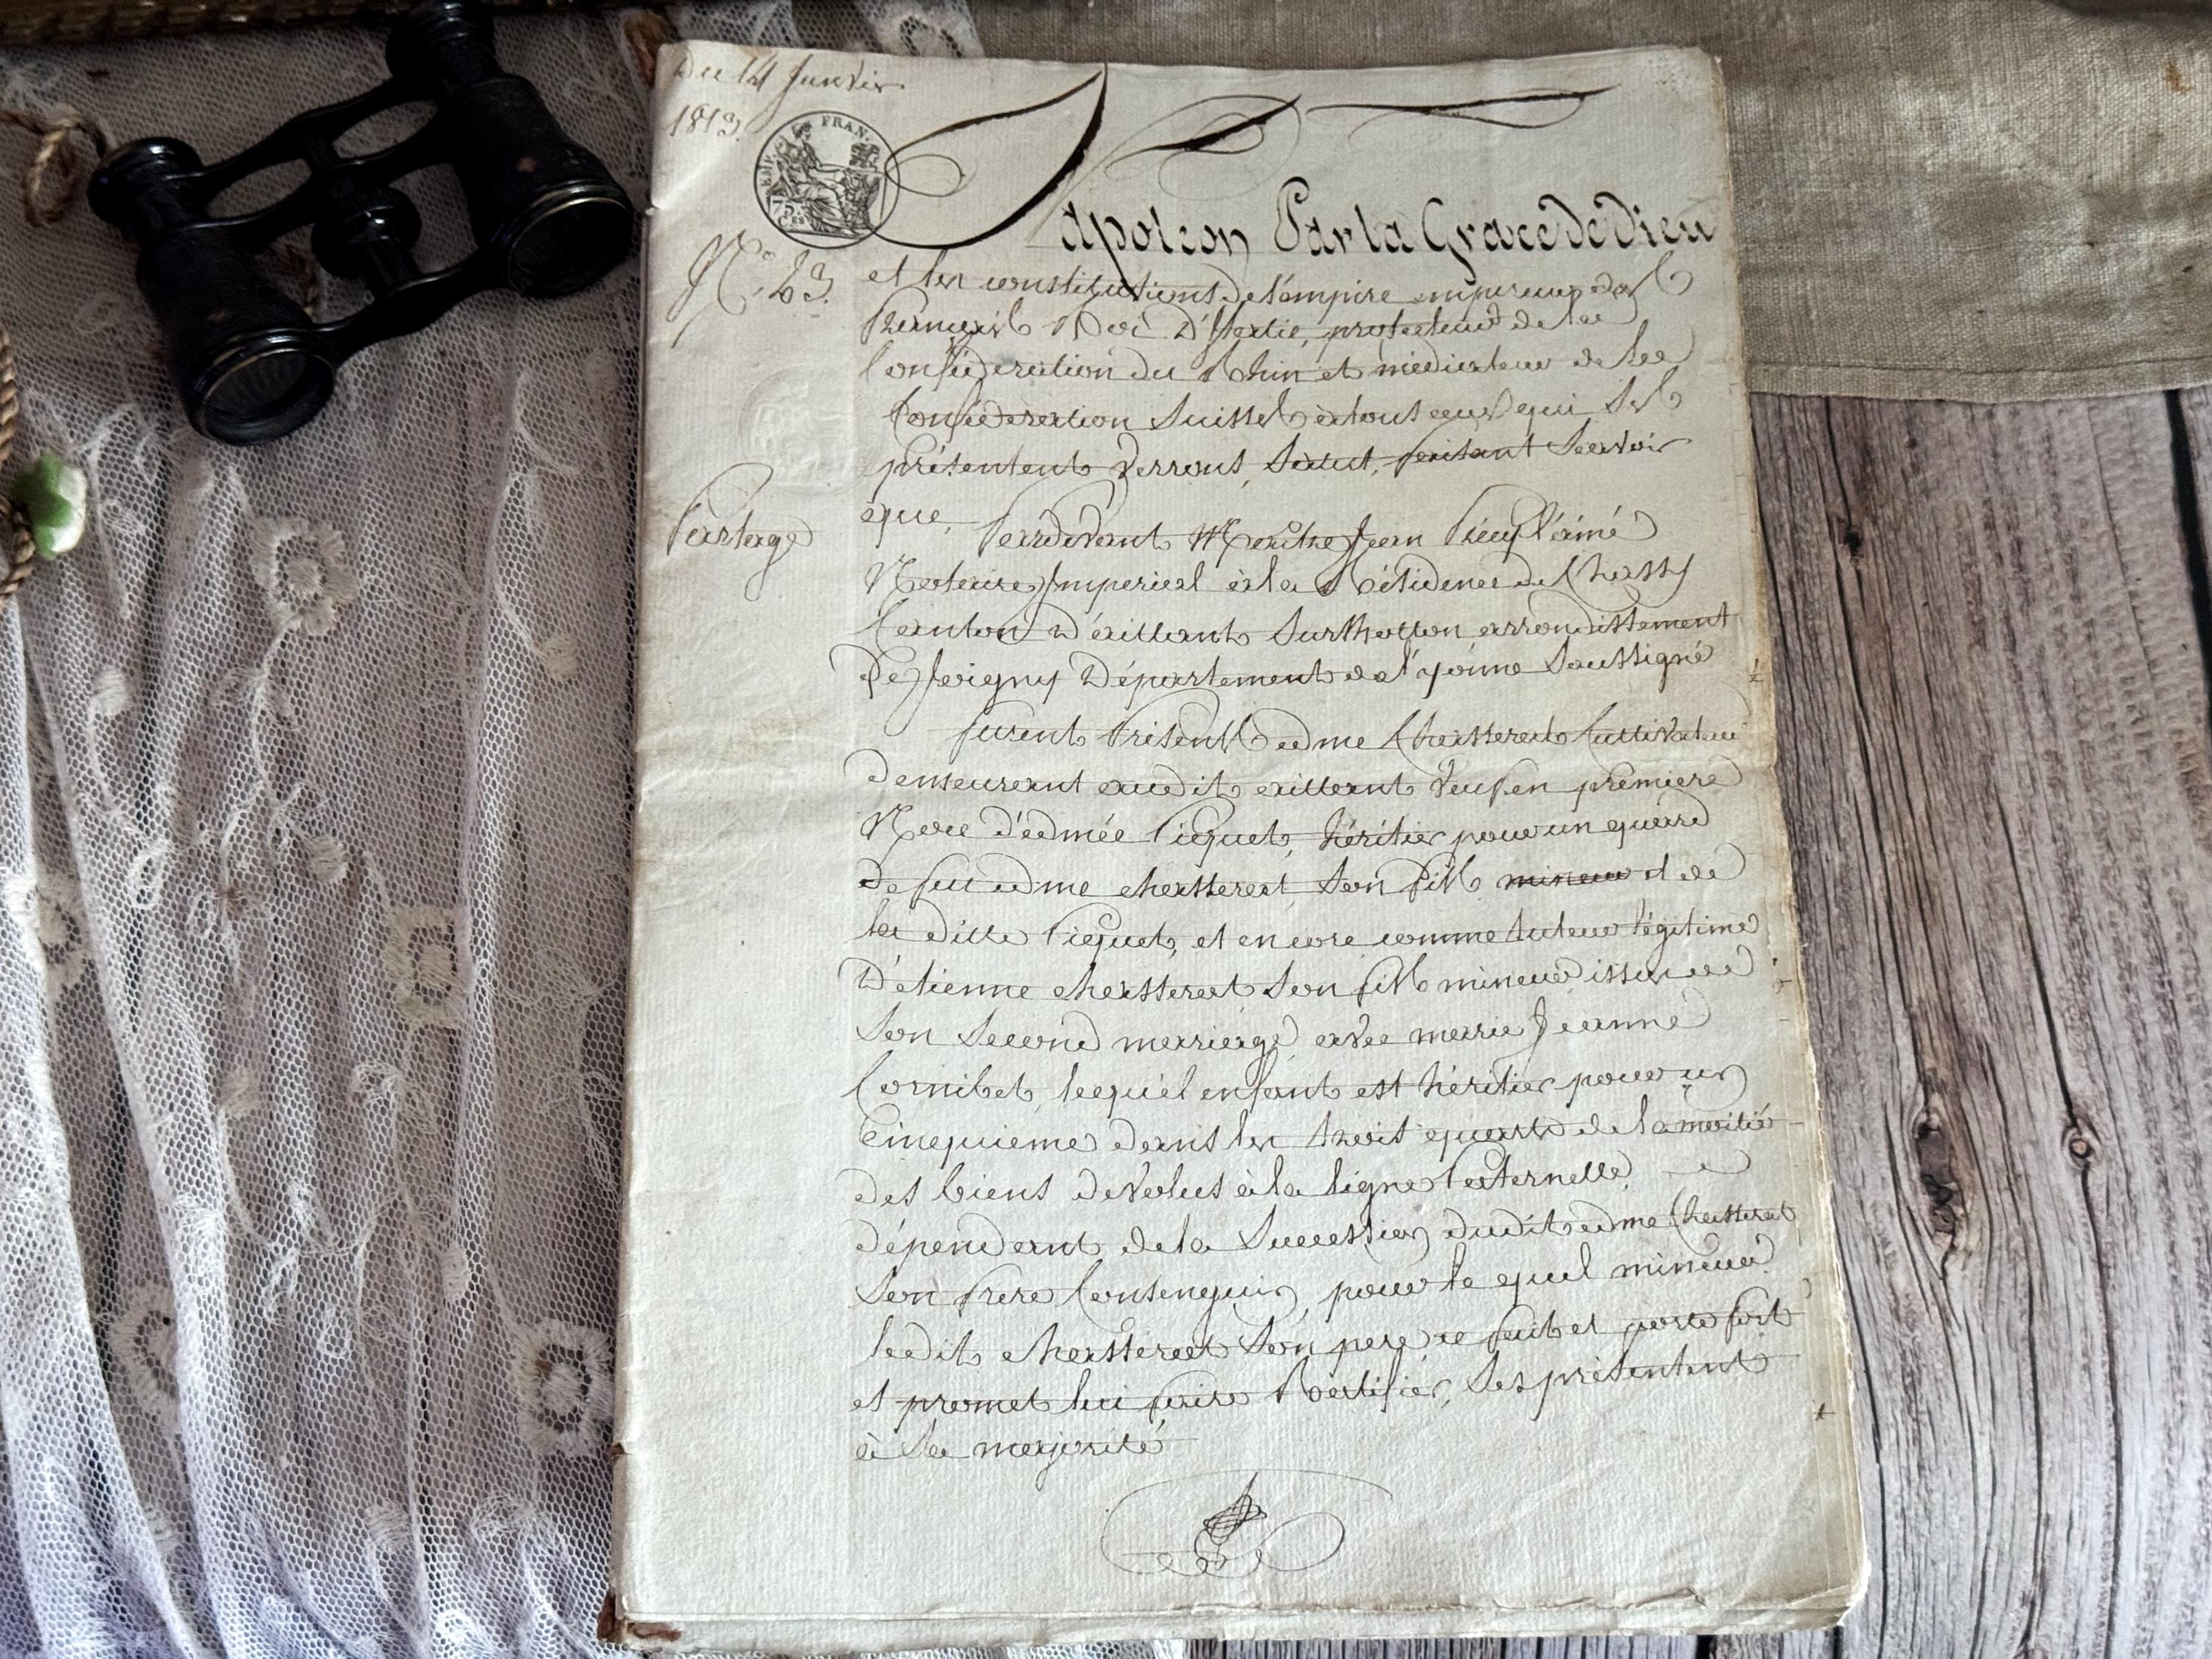 Du 14 Janvier
1813.
EMP. FRAN.
75
CES
N.° 23.
Napoleon Par la Grace de Dieu
et les constitutions de l'empire empereur des
français Roi D'Italie, protecteur de la
Confédération du Rhin et médiateur de la
Confédération Suisse à tous ceux qui ses
présentent verrons, Salut, faisant Savoir
que,
Partage
Pardevant Maitre Jean l'ainé
Notaire Imperial à la Résidence de Chassy
Canton d'aillant Sur Tholon arrondissement
De Joigny Département de l'yonne Soussigné
furent Présents edme Chasserat Cultivateur
demeurant audit aillant Veuf en premiere
Noce d'edmée Piquet, héritier pour un quard
de feu edme chasserat Son fils mineur et de
la ditte Piquet, et encore comme tuteur légitime
D'etienne chasserat Son fils mineur issu de
Son Second mariage avec marie Jeanne
Cornibet, lequel enfant est héritier pour un
Cinquieme dans les trois quarts de la moitié
des biens dévolus à la ligne Paternelle,
dépendant de la Succession dudit edme Chasserat
Son frere Consenguin, pour le quel mineur
ledit chasserat Son pere se fait et porte fort
et promet lui faire Ratifier, Ses présentent
à Sa majorité